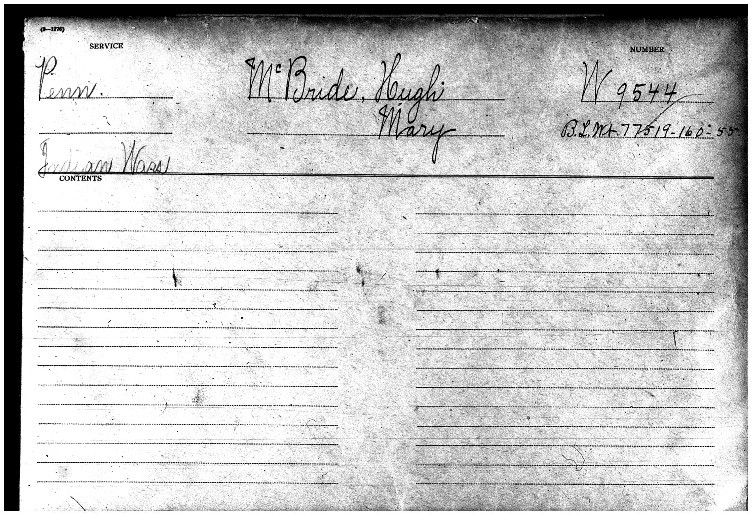 (3—1776)
SERVICE
NUMBER
Penn.
McBride, Hugh
W 9544
Mary
B.L.Wt. 77519-160-55
Indian Wars
CONTENTS